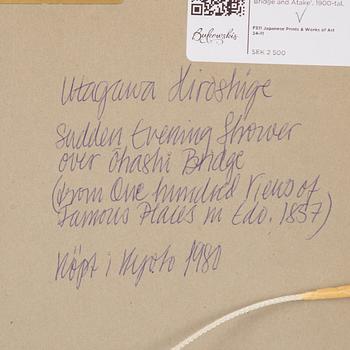 Bridge and Atake', 1900-tal.
Bukowskis
F511 Japanese Prints & Works of Art
SEK 2 500
Utagawa Hiroshige
Sudden Evening Shower
over Ohashi Bridge
(from One hundred Views of
Famous Places in Edo. 1857)
Köpt i Kyoto 1980